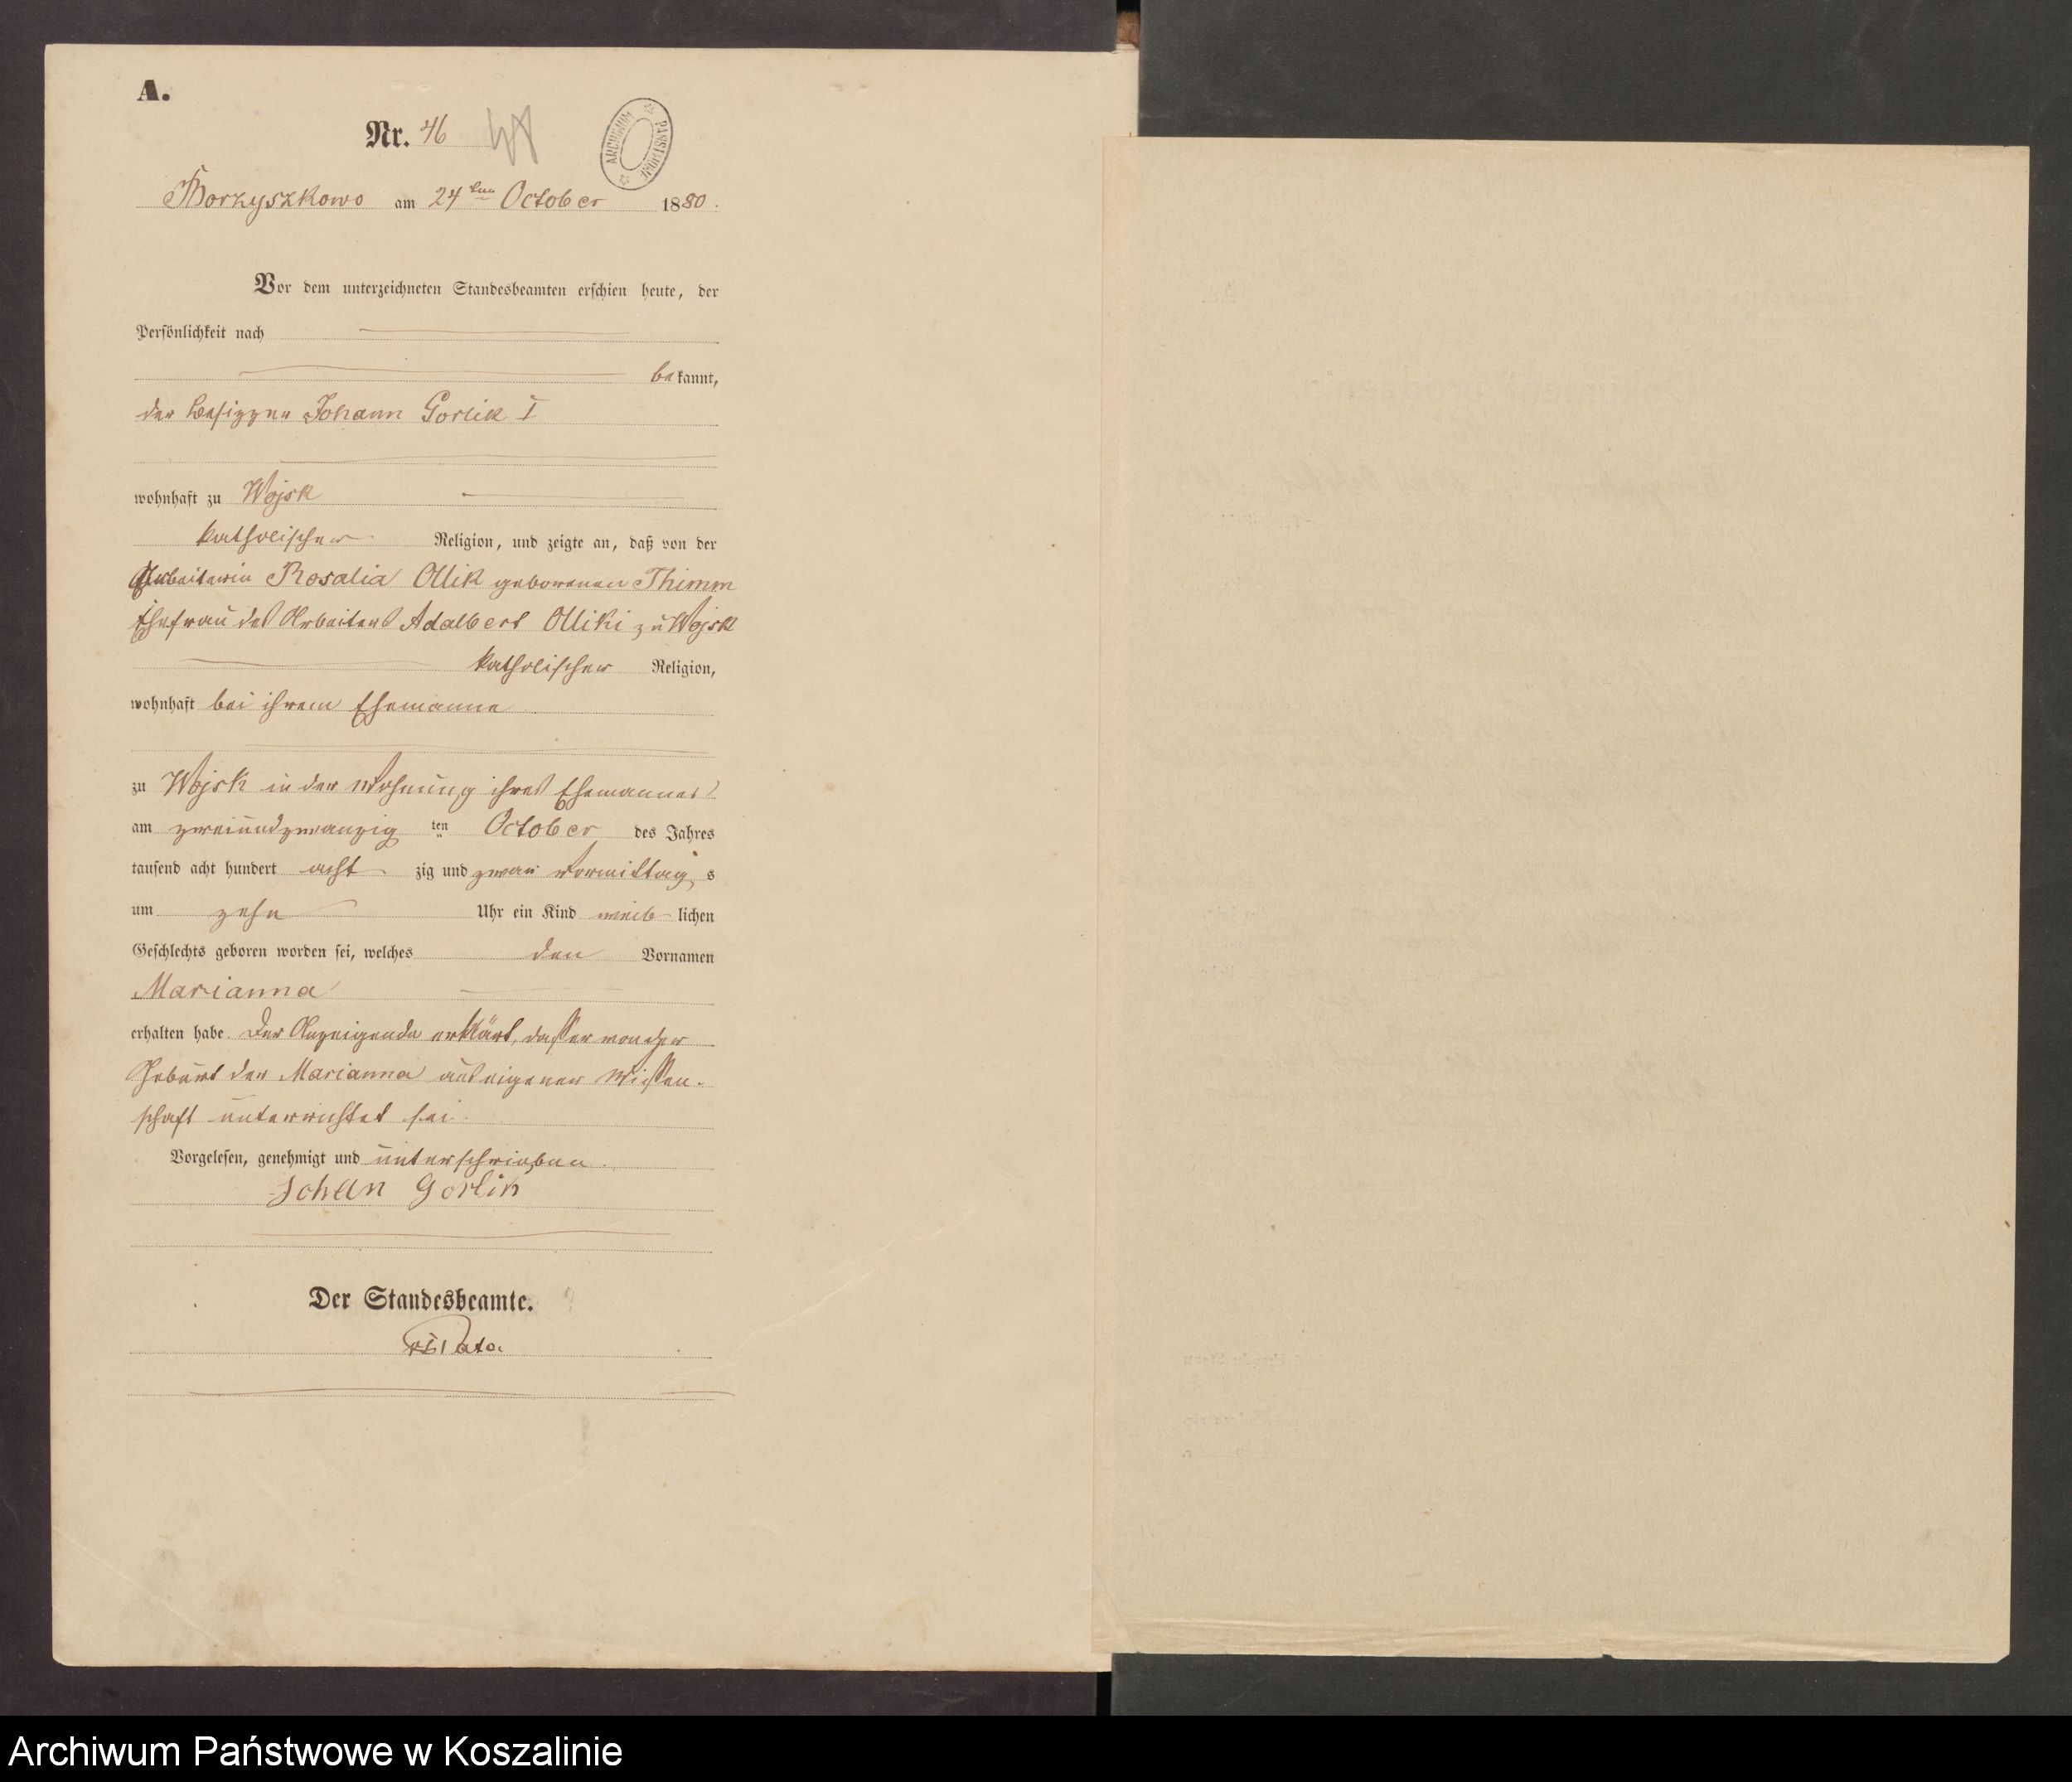 A.
Nr. 46
ARCHIWUM PAŃSTWOWE
Borzyszkowo am 24ten October 1880.
Vor dem unterzeichneten Standesbeamten erschien heute, der
Persönlichkeit nach
bekannt,
der Besitzer Johann Gorlik I
wohnhaft zu Wojsk
katholischer Religion, und zeigte an, daß von der
Arbeiterin Rosalia Ollik geborenen Thimm
Ehefrau des Arbeiters Adalbert Olliki zu Wojsk
katholischer Religion,
wohnhaft bei ihrem Ehemanne
zu Wojsk in der Wohnung ihres Ehemannes
am zweiundzwanzig ten October des Jahres
tausend acht hundert acht zig und zwar Vormittag s
um zehn Uhr ein Kind weib lichen
Geschlechts geboren worden sei, welches den Vornamen
Marianna
erhalten habe. Der Anzeigende erklärt, daß er von der
Geburt der Marianna aus eigener Wissen-
schaft unterrichtet sei.
Vorgelesen, genehmigt und unterschrieben.
Johan Gorlik
Der Standesbeamte.
Archiwum Państwowe w Koszalinie